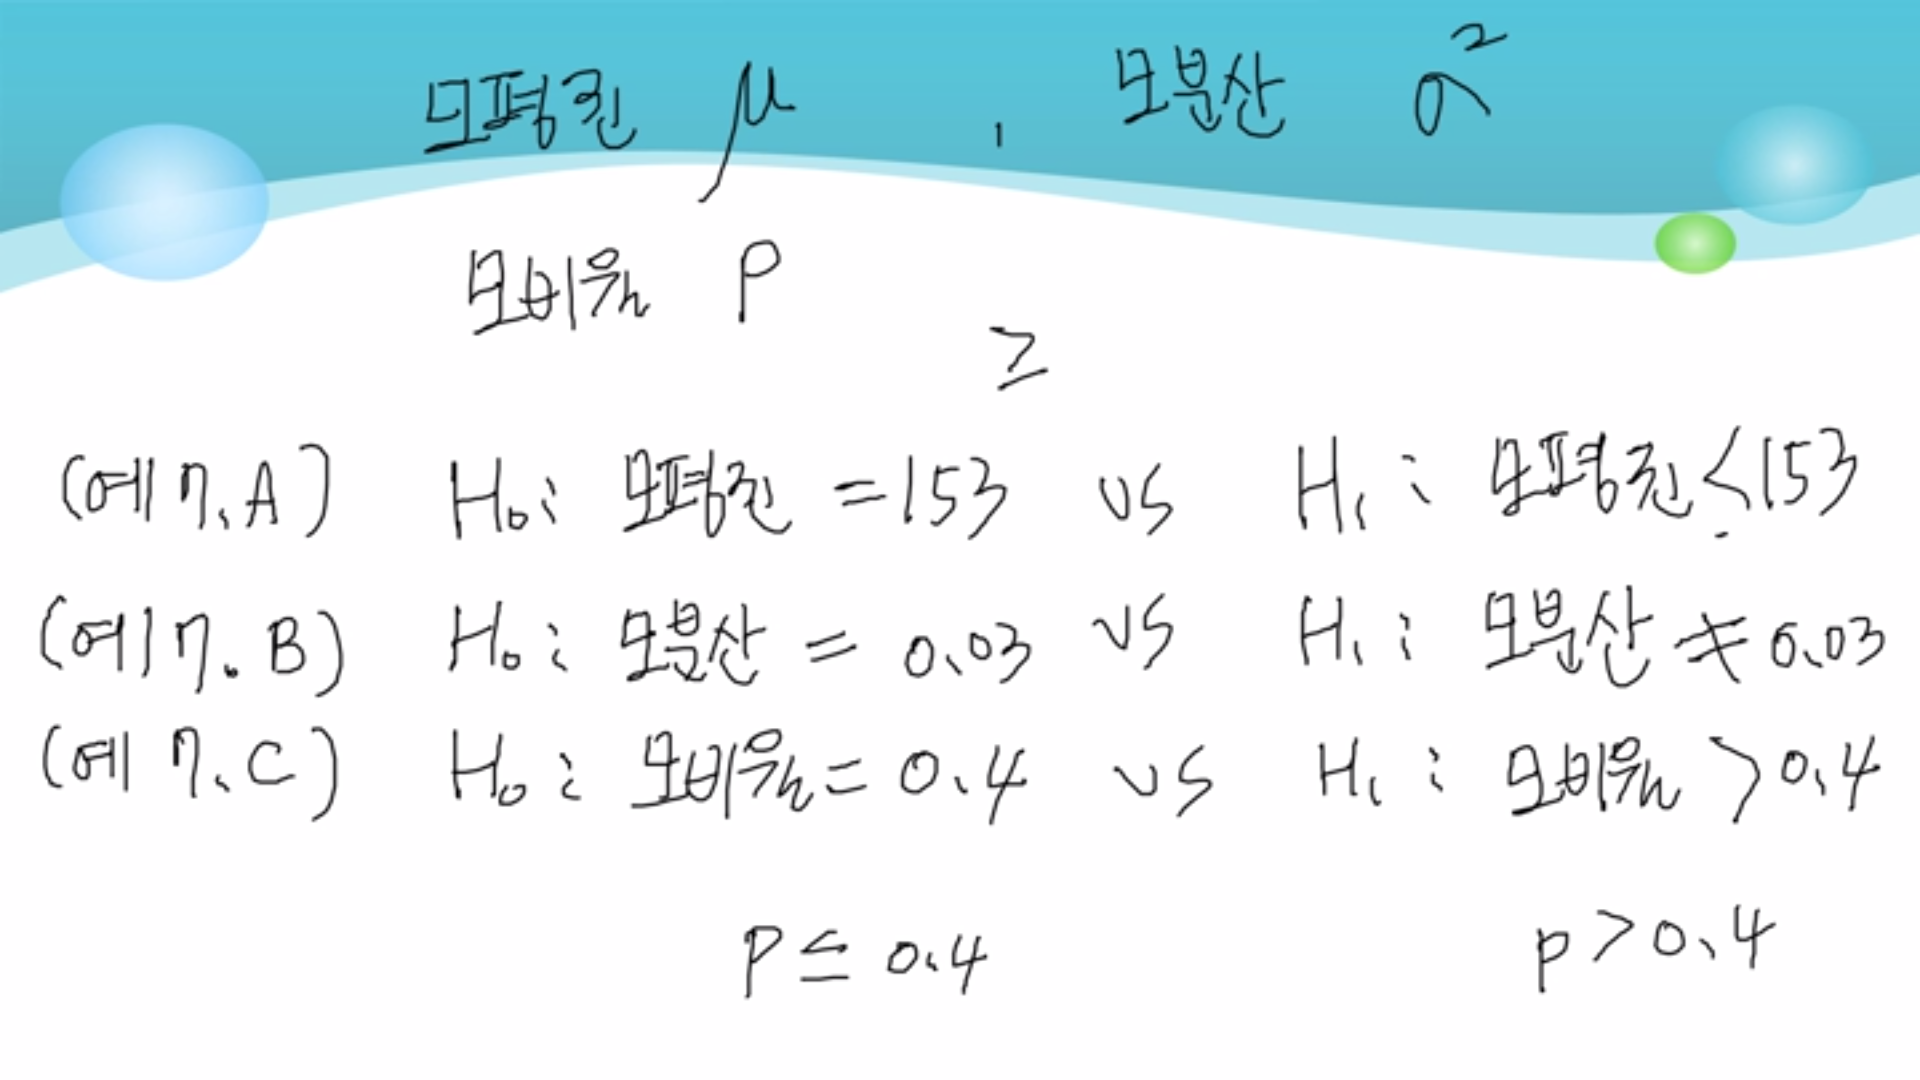 모평균 μ , 모분산 σ²
모비율 P
≥
(예 7.A) H₀: 모평균 = 153 vs H₁: 모평균 < 153
(예 7.B) H₀: 모분산 = 0.03 vs H₁: 모분산 ≠ 0.03
(예 7.C) H₀: 모비율 = 0.4 vs H₁: 모비율 > 0.4
P ≤ 0.4 p > 0.4